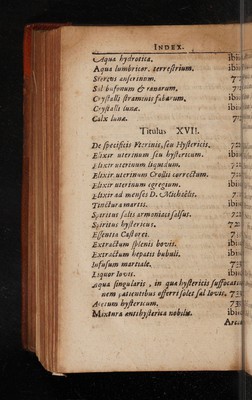 INDEX.
Aqua hydrotica. ibid
Aqua lumbricor. terrestrium. ibid
Stercus anserinum.
Sal bufonum & ranarum,
Crystalli straminis fabarum. ibid
Crystalli lunæ.
Calx lunæ.
Titulus XVII.
De specificis Vterinis, seu Hystericis.
Elixir uterinum seu hystericum. ibid
Elixir uterinum
Elixir uterinum Crollii correctum.
Elixir uterinum egregium. ibid
Elixir ad menses D. Michaëlis.
Tinctura martis. ibid
Spiritus salis armoniaci salsus.
Spiritus hystericus.
Essentia Castorei.
Extractum splenis bovis. ibid
Extractum hepatis bubuli. ibid
Infusum martiale.
Liquor Iovis. ibid
Aqua singularis, in qua hystericis suffocatio
nem patientibus offerri solet sal Iovis,
Arcanum hystericum.
Mixtura antihysterica nobilis. ibid
Arca